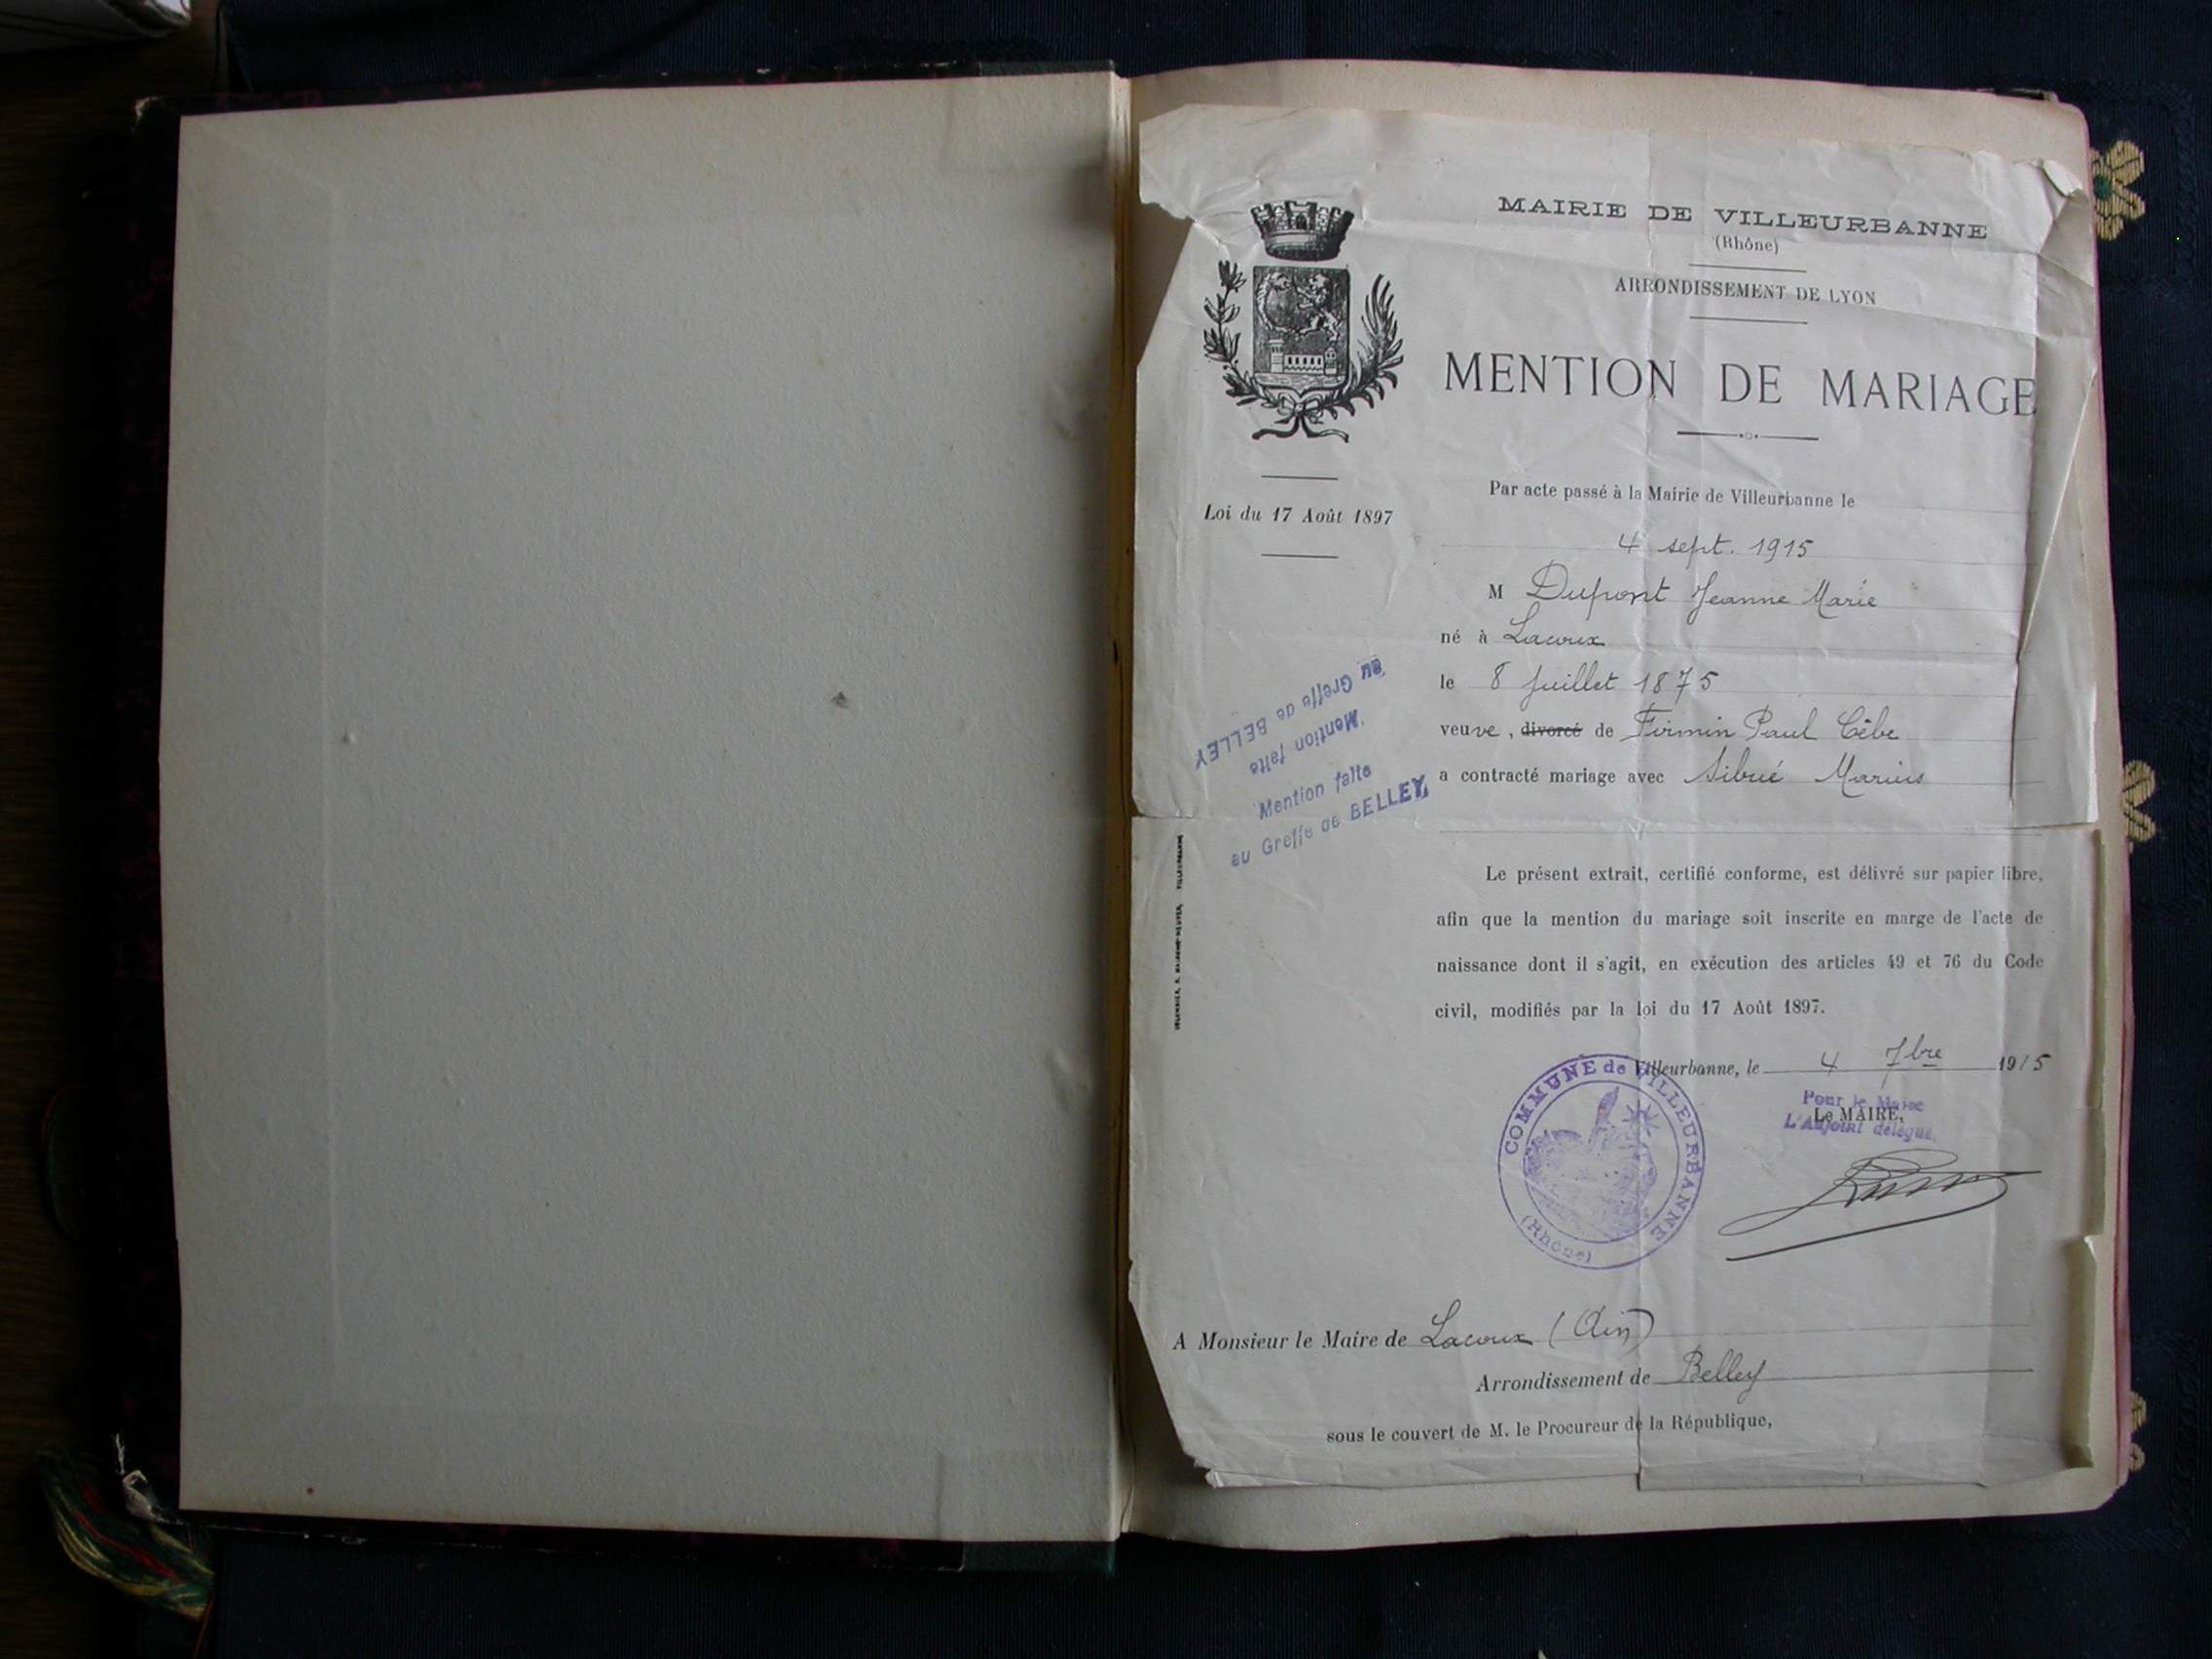 MAIRIE DE VILLEURBANNE
(Rhône)
ARRONDISSEMENT DE LYON
MENTION DE MARIAGE
Loi du 17 Août 1897
Par acte passé à la Mairie de Villeurbanne le
4 sept. 1915
M Dupont Jeanne Marie
né à Lacoux
le 8 Juillet 1875
veuve, divorcé de Firmin Paul Cèbe
a contracté mariage avec Sibué Marius
au Greffe de BELLEY
Mention faite
Mention faite
au Greffe de BELLEY
Le présent extrait, certifié conforme, est délivré sur papier libre,
afin que la mention du mariage soit inscrite en marge de l'acte de
naissance dont il s'agit, en exécution des articles 49 et 76 du Code
civil, modifiés par la loi du 17 Août 1897.
Villeurbanne, le 4 7bre 1915
Pour le Maire
Le MAIRE,
L'Adjoint délégué
COMMUNE de VILLEURBANNE
(Rhône)
A Monsieur le Maire de Lacoux (Ain)
Arrondissement de Belley
sous le couvert de M. le Procureur de la République,